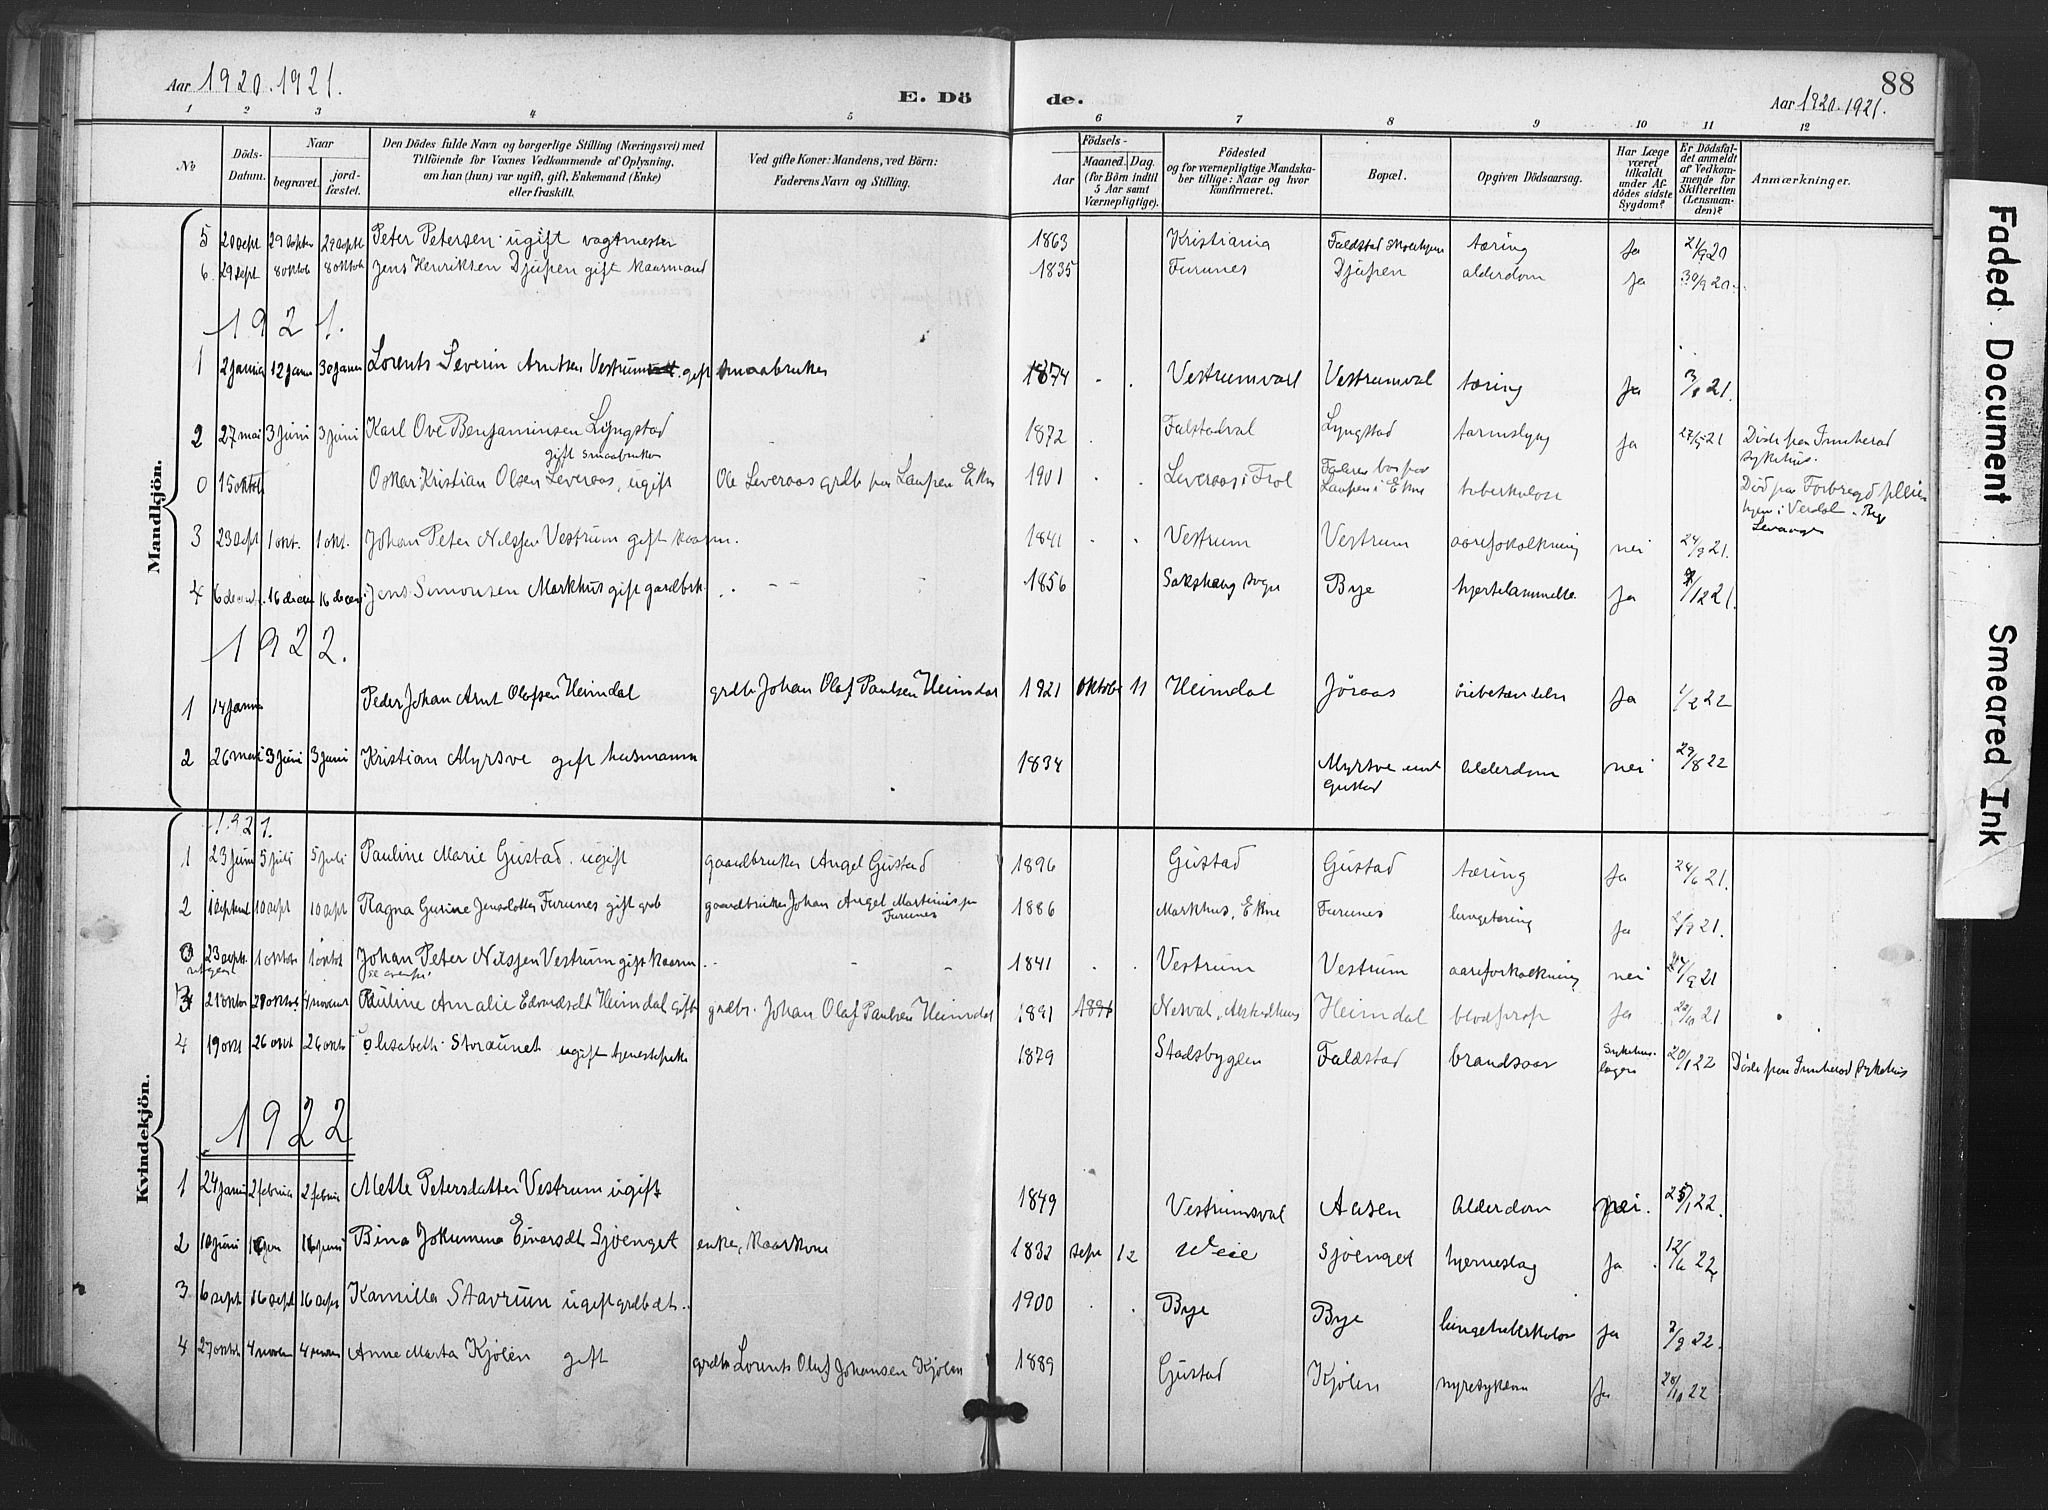 Aar 1920.1921.
E. Dö
de.
88
Aar 1920.1921.
1 2 3 4 5 6 7 8 9 10 11 12
No
Döds-Datum.
Naar
begravet.
jord-fæstet.
Den Dödes fulde Navn og borgerlige Stilling (Næringsvei) med
Tilföiende for Voxnes Vedkommende af Oplysning,
om han (hun) var ugift, gift, Enkemand (Enke)
eller fraskilt.
Ved gifte Koner: Mandens, ved Börn:
Faderens Navn og Stilling.
Födsels-
Aar
Maaned. Dag.
(for Börn indtil
5 Aar samt
Værnepligtige).
Födested
og for værnepligtige Mandska-
ber tillige: Naar og hvor
konfirmeret.
Bopæl.
Opgiven Dödsaarsag.
Har Læge
været
tilkaldt
under Af-
dödes sidste
Sygdom?
Er Dödsfal-
det anmeldt
af Vedkom-
mende for
Skifteretten
(Lensman-
den)?
Anmærkninger.
Mandkjön.
5 20 sept 29 septbr 29 septb Peter Petersen ugift vagtmester 1863 Kristiania Faldstad tæring Ja 21/9 20
6. 29 sept. 8 oktob 8 oktob Jens Henriksen Djupen gift kaarmand 1835 Furunes Djupen alderdom Ja 30/9 20.
1921.
1 2 janua 12 janu 30 janu Lorents Severin Arntsen Vestrum gift smaabruker 1874 Vestrumvald Vestrumval tæring Ja 3/1 21.
2 27 mai 3 Juni 3 Juni Karl Ove Benjaminsen Lyngstad 1872 Falstadval Lyngstad tarmslyng Ja 27/5 21 Døde paa Innherad
gift smaabruker sykehus.
0 15 oktob Oskar Kristian Olsen Leveraas, ugift Ole Leveraas grdb paa Laupen Ekne 1901 Leveraas i Frol Faderen bor paa
Laupen i Ekne tuberkulose Død paa Forbregd pleie
hjem i Verdal. Beg
Levanger
3 23 sept 1 okt. 1 okt. Johan Peter Nilssen Vestrum gift kaarm. 1841 Vestrum Vestrum aareforkalkning nei 24/9 21.
4 6 decemb. 16 decem 16 decem Jens Simonsen Markhus gift gardbrk. 1856 Sakshaug sogn Bye hjertelammelse. Ja 7/12 21.
1922.
1 14 janua Peder Johan Arnt Olafsen Heimdal grdbr Johan Olaf Paulsen Heimdal 1921 oktobe 11 Heimdal Jøraas ørebetændelse Ja 1/2 22
2 26 mai 3 Juni 3 Juni Kristian Myrsve gift husmann 1834 Myrsve und
Gustad alderdom nei 29/8 22
Kvindekjön.
1921.
1 23 juni 5 juli 5 juli Pauline Marie Gustad. ugift gaardbruker Angel Gustad 1896 Gustad Gustad tæring Ja 24/6 21.
2 1 septemb 10 sept 10 sept Ragna Gurine Jensdatter Furunes gift grb gaardbruker Johan Angel Martinus paa
Furunes 1886 Markhus, Ekne Furunes lungetæring Ja 2/9 21.
23 septb. 1 oktob 1 oktob Johan Peter Nilssen Vestrum gift kaarm 1841 Vestrum Vestrum aareforkalkning nei 24/9 21
utgaar se ovenfor
3 21 oktob 29 oktob 4 novemb Pauline Amalie Edvardsdt Heimdal gift grdbr. Johan Olaf Paulsen Heimdal 1891 Nesval, Alstadhaug Heimdal blodprop Ja 22/10 21
4 19 okt 26 okt 26 oktb Elisabeth Storaunet ugift tjenestepike 1879 Stadsbygden Faldstad brandsaar Sykehus-
lægen 20/1 22 Døde paa Innherad sykehus
1922
1 24 janu 2 februa 2 februa Mette Petersdatter Vestrum ugift 1849 Vestrumsval Aasen Alderdom nei. 25/1 22.
2 10 juni 16 juni 16 juni Bina Jokumina Einarsdt Sjøenget enke, kaarkone 1832 sept 12 Weie Sjøenget hjerneslag Ja 12/6 22
3 6 sept 16 sept 16 sept Kamilla Stavrum ugift grdb dt. 1900 Bye Bye lungetuberkulose Ja 7/9 22.
4 27 oktob 4 novem 4 novem Anne Marta Kjølen gift grdbr Lorents Oluf Johansen Kjølen 1889 Gustad Kjølen nyresykdom Ja 28/10 22
Faded Document
Smeared Ink